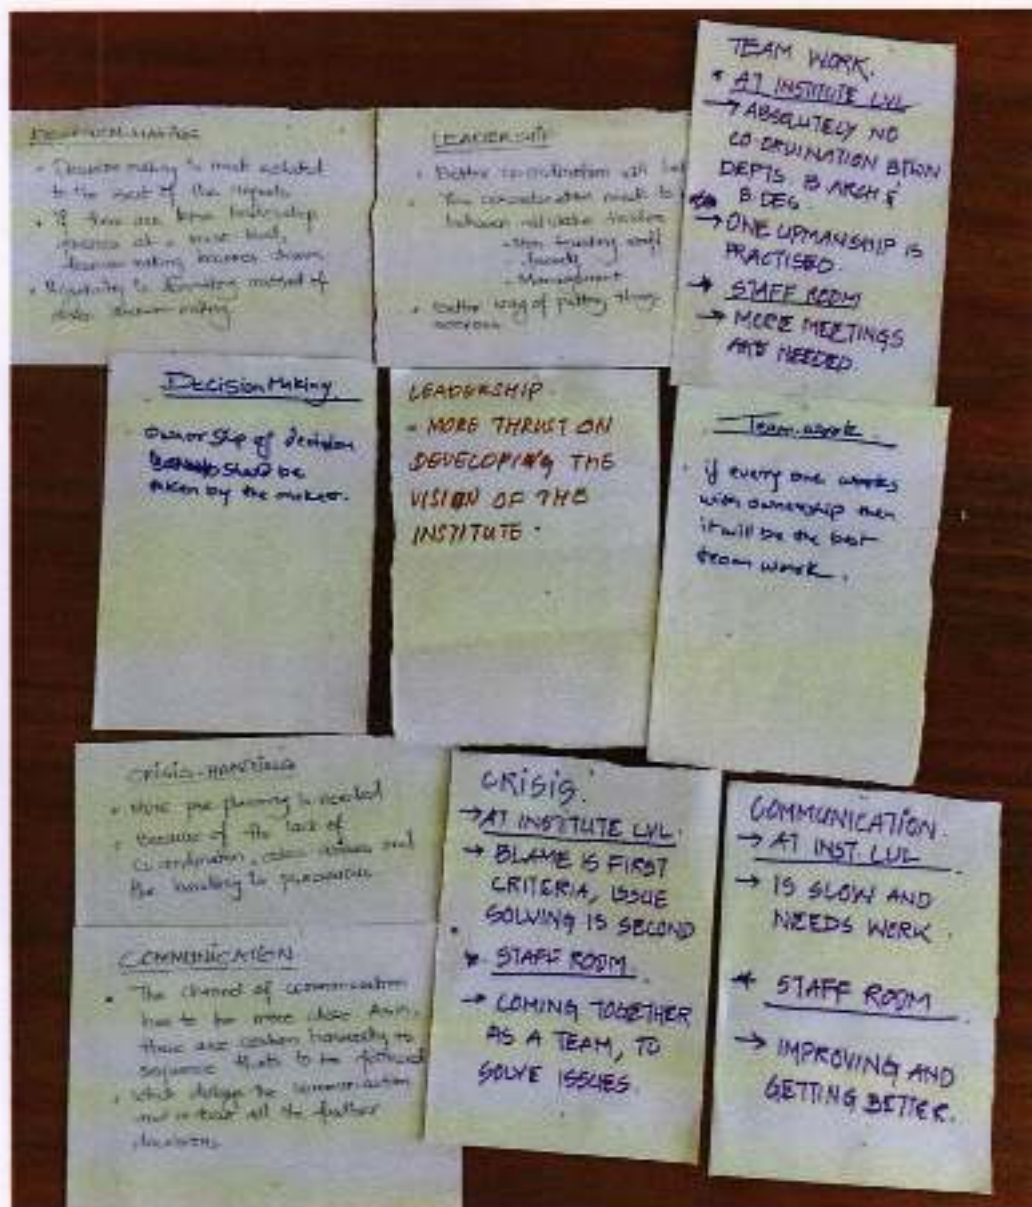 DECISION-MAKING
• Decision making is most isolated
to the rest of the
• If there are
at a
decision making becomes
•
decision making
LEADERSHIP
• Better co-ordination will
• consideration needs to
between
- Non teaching staff
- Faculty
- Management
• Better way of putting things
across
TEAM WORK.
* AT INSTITUTE LVL
→ ABSOLUTELY NO
CO ORDINATION BTWN
DEPTS. B ARCH &
B DES
→ ONE UPMANSHIP IS
PRACTISED.
* STAFF ROOM
→ MORE MEETINGS
ARE NEEDED.
Decision Making
ownership of decision
should be
taken by the maker.
LEADERSHIP.
- MORE THRUST ON
DEVELOPING THE
VISION OF THE
INSTITUTE.
Team work
• if every one works
with ownership then
it will be the best
team work.
CRISIS-HANDLING
• More pre planning is needed
• Because of the lack of
co-ordination, crisis and
the
COMMUNICATION
• The channel of communication
has to be more clear
there are certain hierarchy
sequence to be followed
• which delays the communication
all the further
decisions
CRISIS:
→ AT INSTITUTE LVL.
→ BLAME IS FIRST
CRITERIA, ISSUE
SOLVING IS SECOND
* STAFF ROOM
→ COMING TOGETHER
AS A TEAM, TO
SOLVE ISSUES.
COMMUNICATION.
→ AT INST. LVL
→ IS SLOW AND
NEEDS WORK.
* STAFF ROOM
→ IMPROVING AND
GETTING BETTER.